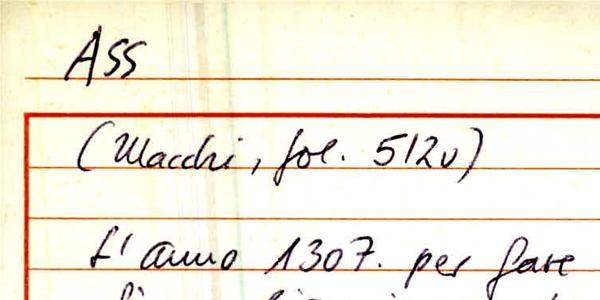 Ass
(Macchi, fol. 512v)
L'anno 1307. per fare